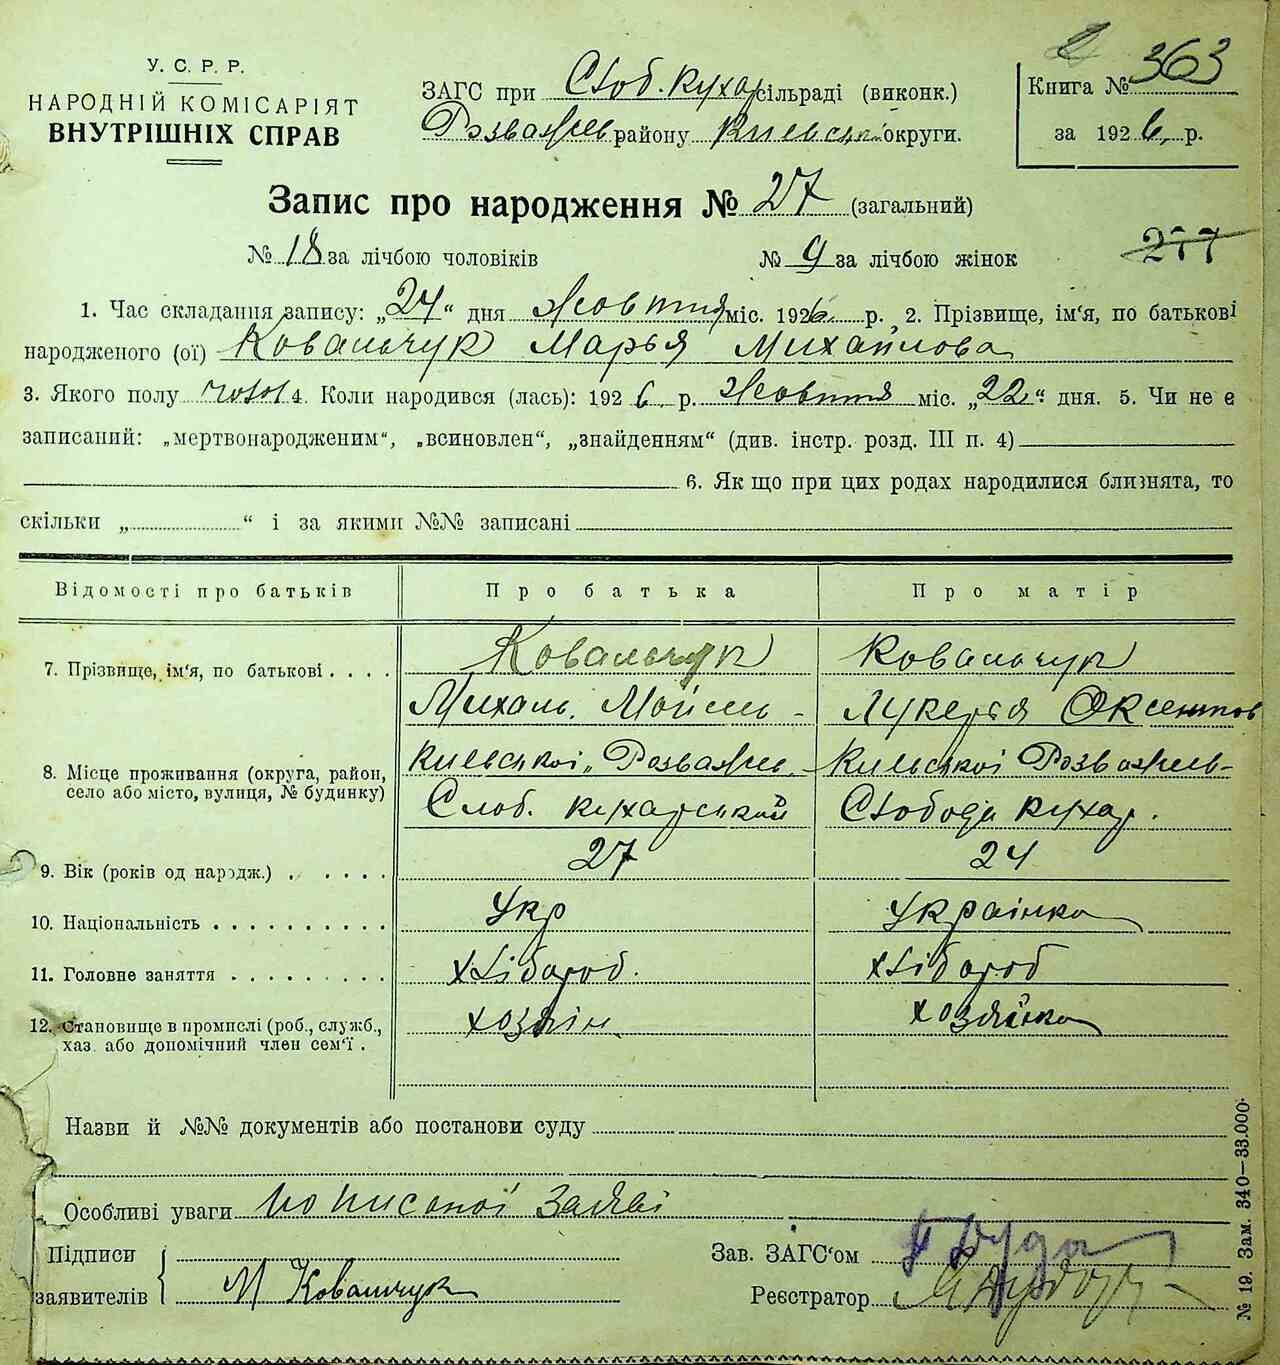 У. С. Р. Р.
НАРОДНІЙ КОМІСАРІЯТ
ВНУТРІШНІХ СПРАВ
ЗАГС при Слоб. Кухар сільраді (виконк.)
Розважев району Киевської округи.
Книга № 363
за 1926 р.
Запис про народження № 27 (загальний)
№ 18 за лічбою чоловіків № 9 за лічбою жінок
277
1. Час складання запису: „24“ дня Жовтня міс. 1926 р. 2. Прізвище, ім‘я, по батькові
народженого (ої) Ковальчук Марья Михайлова
3. Якого полу жін 4. Коли народився (лась): 1926 р. Жовтня міс. „22“ дня. 5. Чи не є
записаний: „мертвонародженим“, „всиновлен“, „знайденням“ (див. інстр. розд. III п. 4)
6. Як що при цих родах народилися близнята, то
скільки „ “ і за якими №№ записані
Відомості про батьків Про батька Про матір
7. Прізвище, ім‘я, по батькові . . . . Ковальчук Ковальчук
Михаль. Мойсеь - Лукерья Оксентов
8. Місце проживання (округа, район, село або місто, вулиця, № будинку) Киевської „ Розважев. Киевської Розважев-
Слоб. Кухарський Слобода Кухар.
9. Вік (років од нарoдж.) . . . . . 27 24
10. Національність . . . . . . . . . . Укр Українка
11. Головне заняття . . . . . . . . . хлібороб. хлібороб
12. Становище в промислі (роб., служб., хаз. або допомічний член сем‘ї . хозяін хозяйка
Назви й №№ документів або постанови суду
Особливі уваги по писаної заяві
Підписи
заявителів М Ковальчук
Зав. ЗАГС‘ом Дуда
Реєстратор
№ 19. Зам. 340—33.000